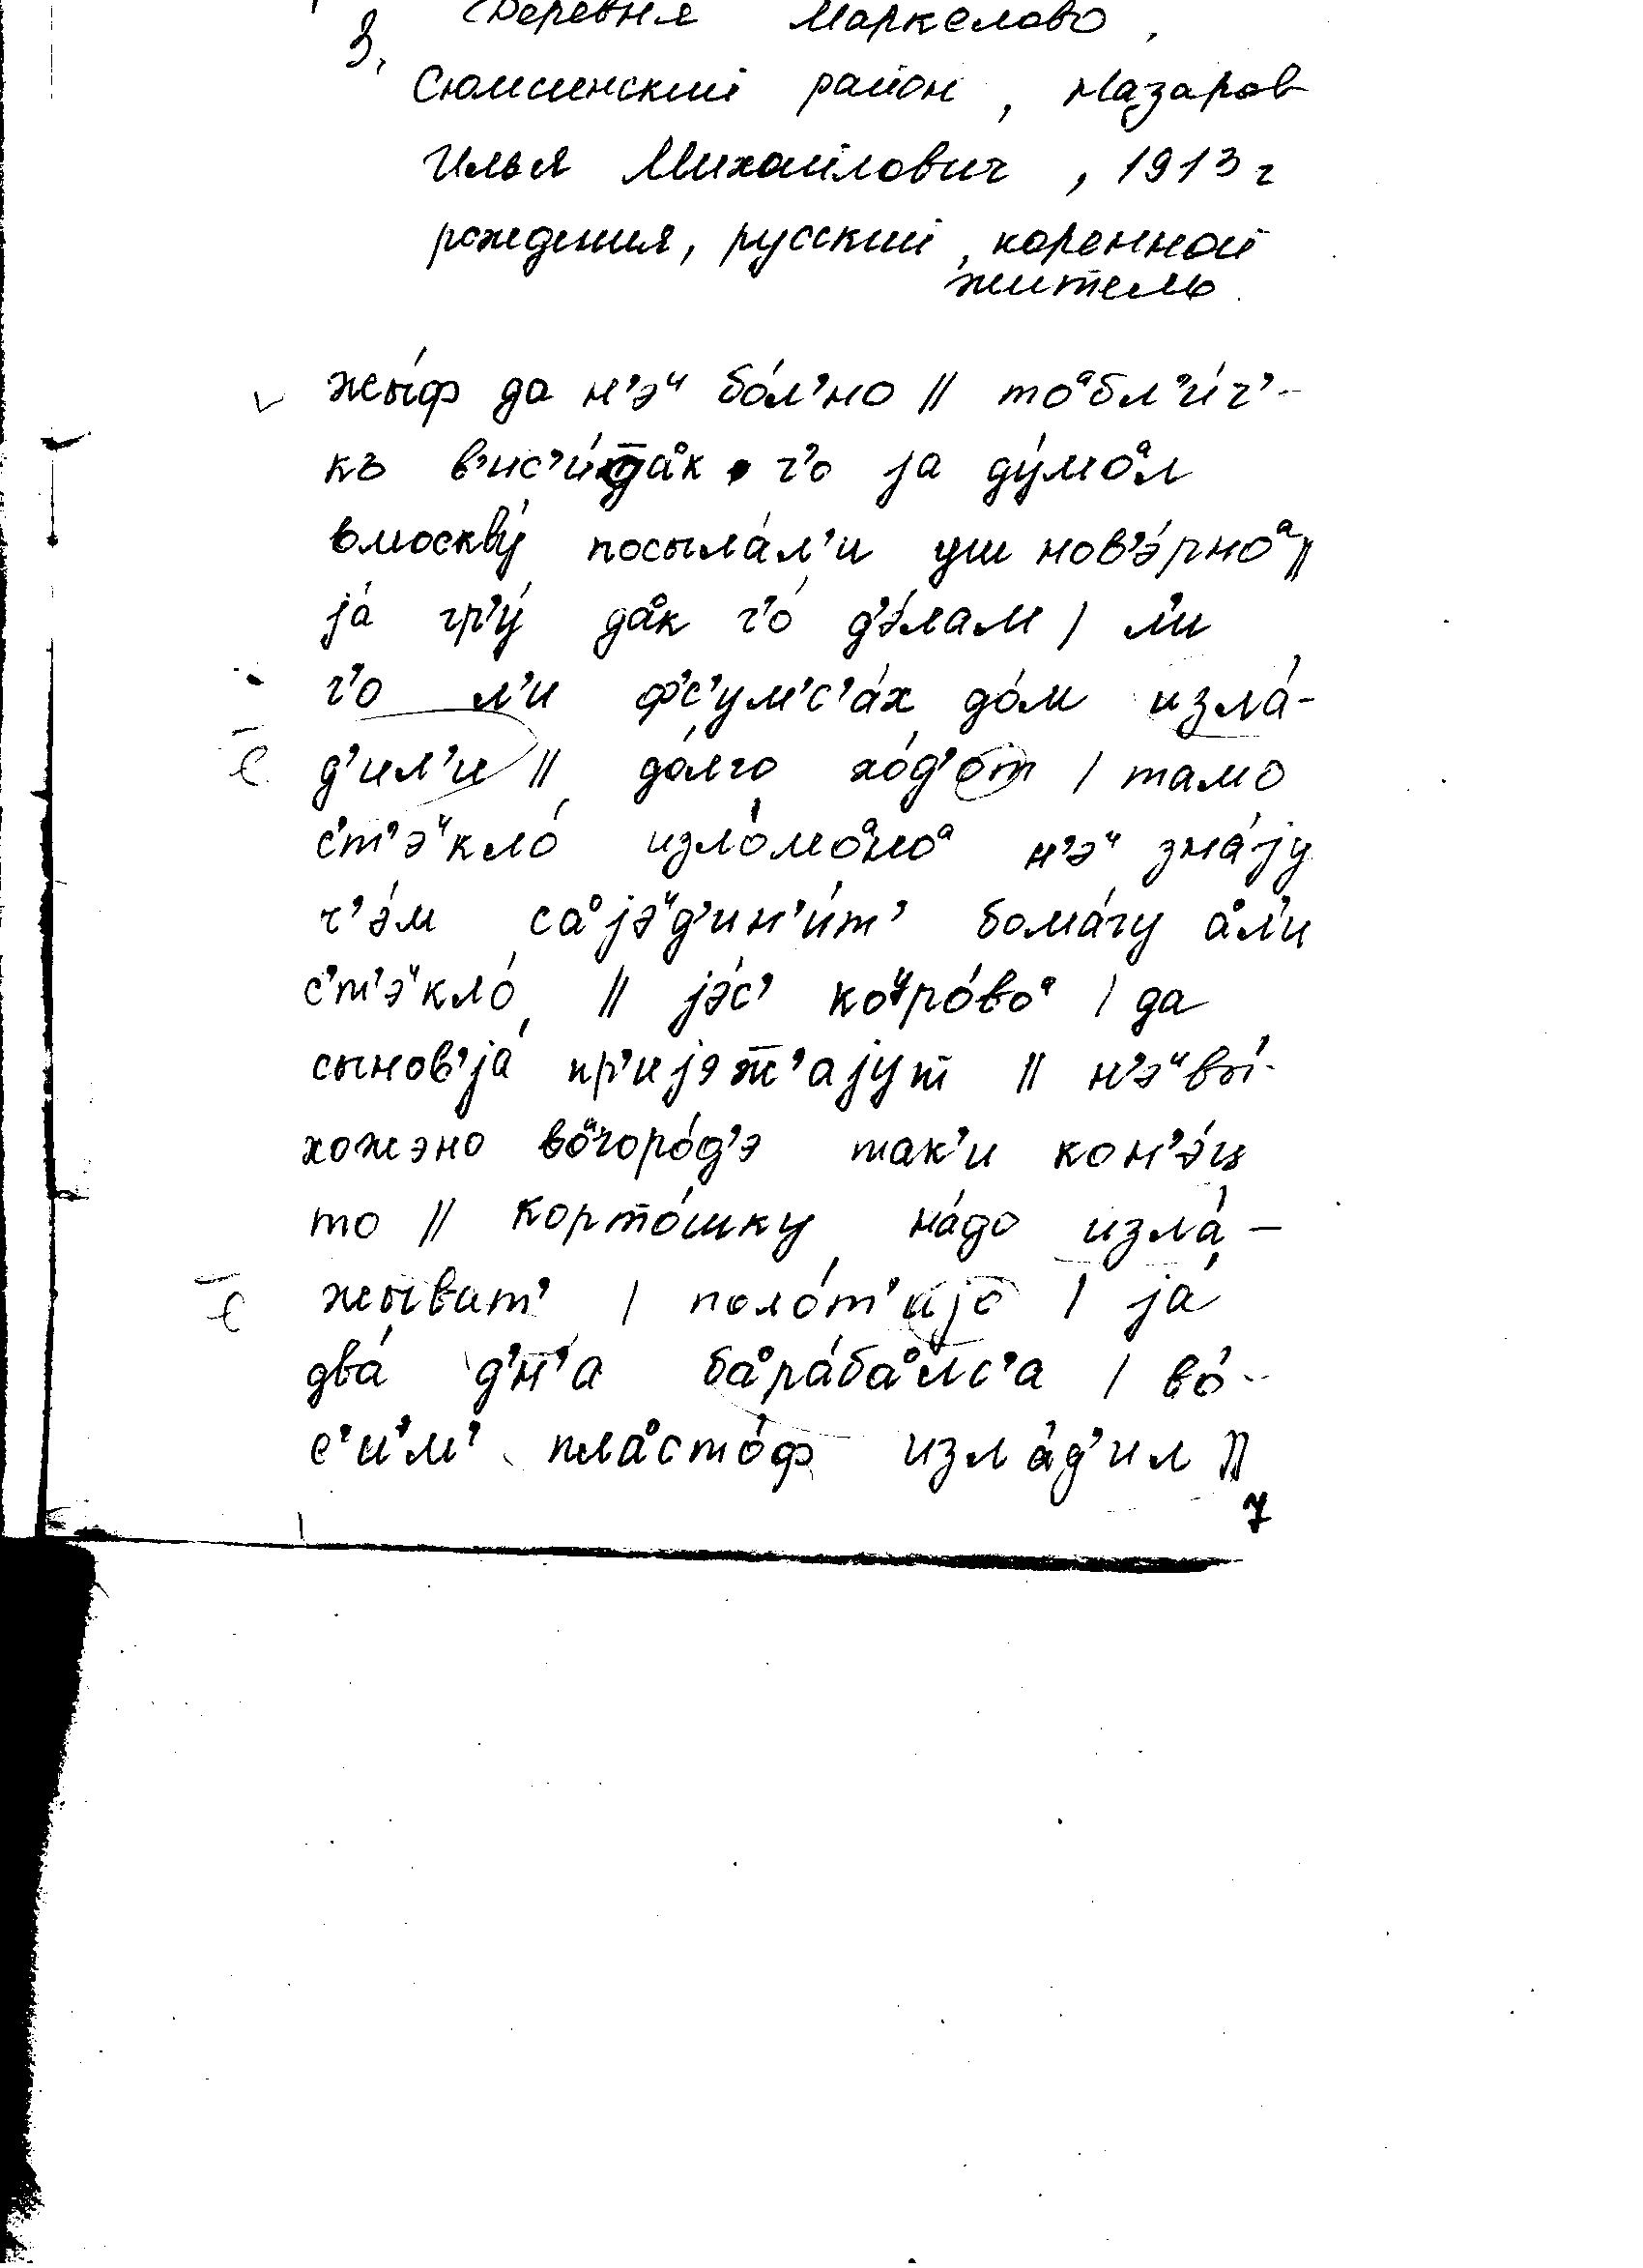 3. Деревня Маркелово,
Сюмсинский район, Назаров
Илья Михайлович, 1913 г
рождения, русский, коренной
житель.
жы́ф да н’эᵘ бо́л’но || тоᵃбл’и́ч’-
къ в’ис’и́т даᵒк ч’о ја ду́моᵃл
вмоскву́ посыла́л’и уш нов’э́рноᵃ ||
ја́ гр’у́ даᵒк ч’о́ д’э́лам / л’и
ч’о л’и ф’с’ум’с’а́х до́м изла́-
д’ил’и || до́лго хо́д’от / тамо
с’т’эᵘкло́ изло́моᵃноᵃ н’эᵘ зна́ју
ч’э́м саᵒјэᵘд’ин’и́т’ бома́гу аᵒл’и
с’т’эᵘкло́ || јэ́с’ коʸро́воᵃ / да
сынов’ја́ пр’ијэжж’ајут || н’эᵘвы́-
хожэно воᵃгоро́д’э так’и кон’э́ц
то || корто́шку на́до изла́-
жыват’ / поло́т’ијо / ја́
два́ д’н’а баᵒра́баᵒлс’а / во́-
с’им’ плаᵒсто́ф изла́д’ил ||
7